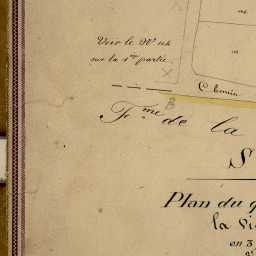 Voir le N°
sur la 1ère partie.
Chemin
B
Fme de la
S
Plan du q
la Vi
en 3